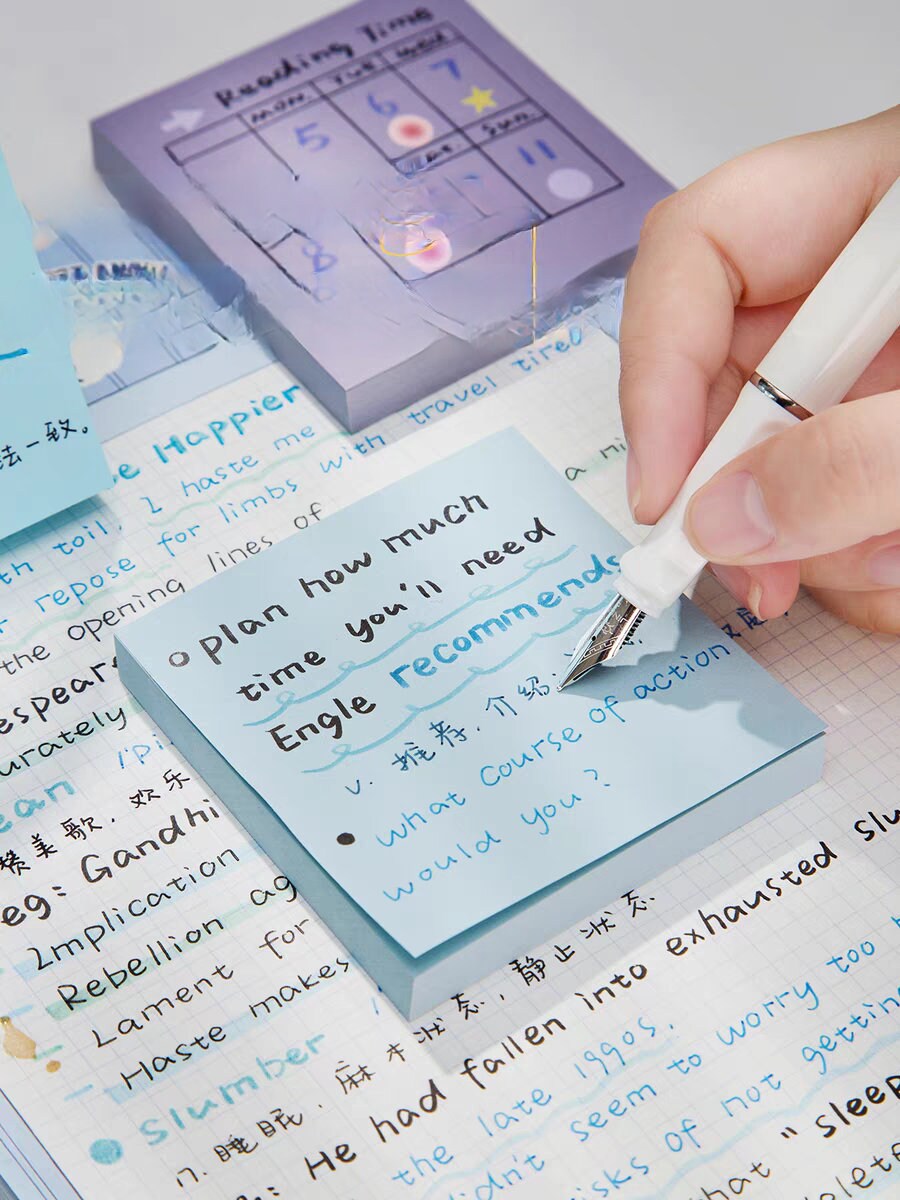 Reading Time
mon. Tue Wed
5 6 7
Sun.
8 11
法一致。
Be Happier
th toil. I haste me
r repose for limbs with travel tired
the opening lines of
a
○ plan how much
time you'll need
Engle recommends
v. 推荐, 介绍.
● what course of action
would you?
urately
ean /pi
赞美歌, 欢乐
eg: Gandhi
Implication
Rebellion ag
Lament for
Haste makes
slumber
n. 睡眠, 麻木状态, 静止状态
He had fallen into exhausted slu
the late 1990s.
didn't seem to worry too
isks of not getting
hat "sleep